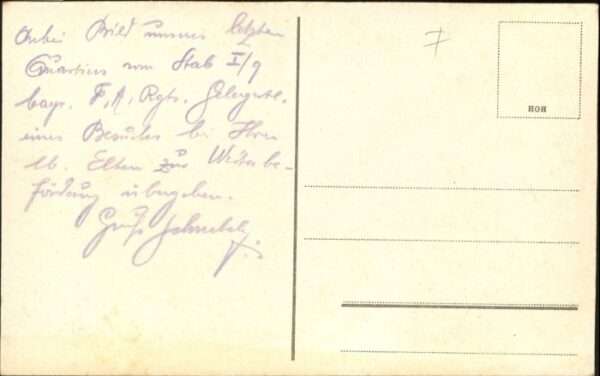 Anbei Bild unseres letzten
Quartiers vom Stab I/9
bayr. F. A. Rgts. Gelegentl.
eines Besuches bei Ihren
lb. Eltern zur Weiterbe-
förderung übergeben.
Gruß
HOH